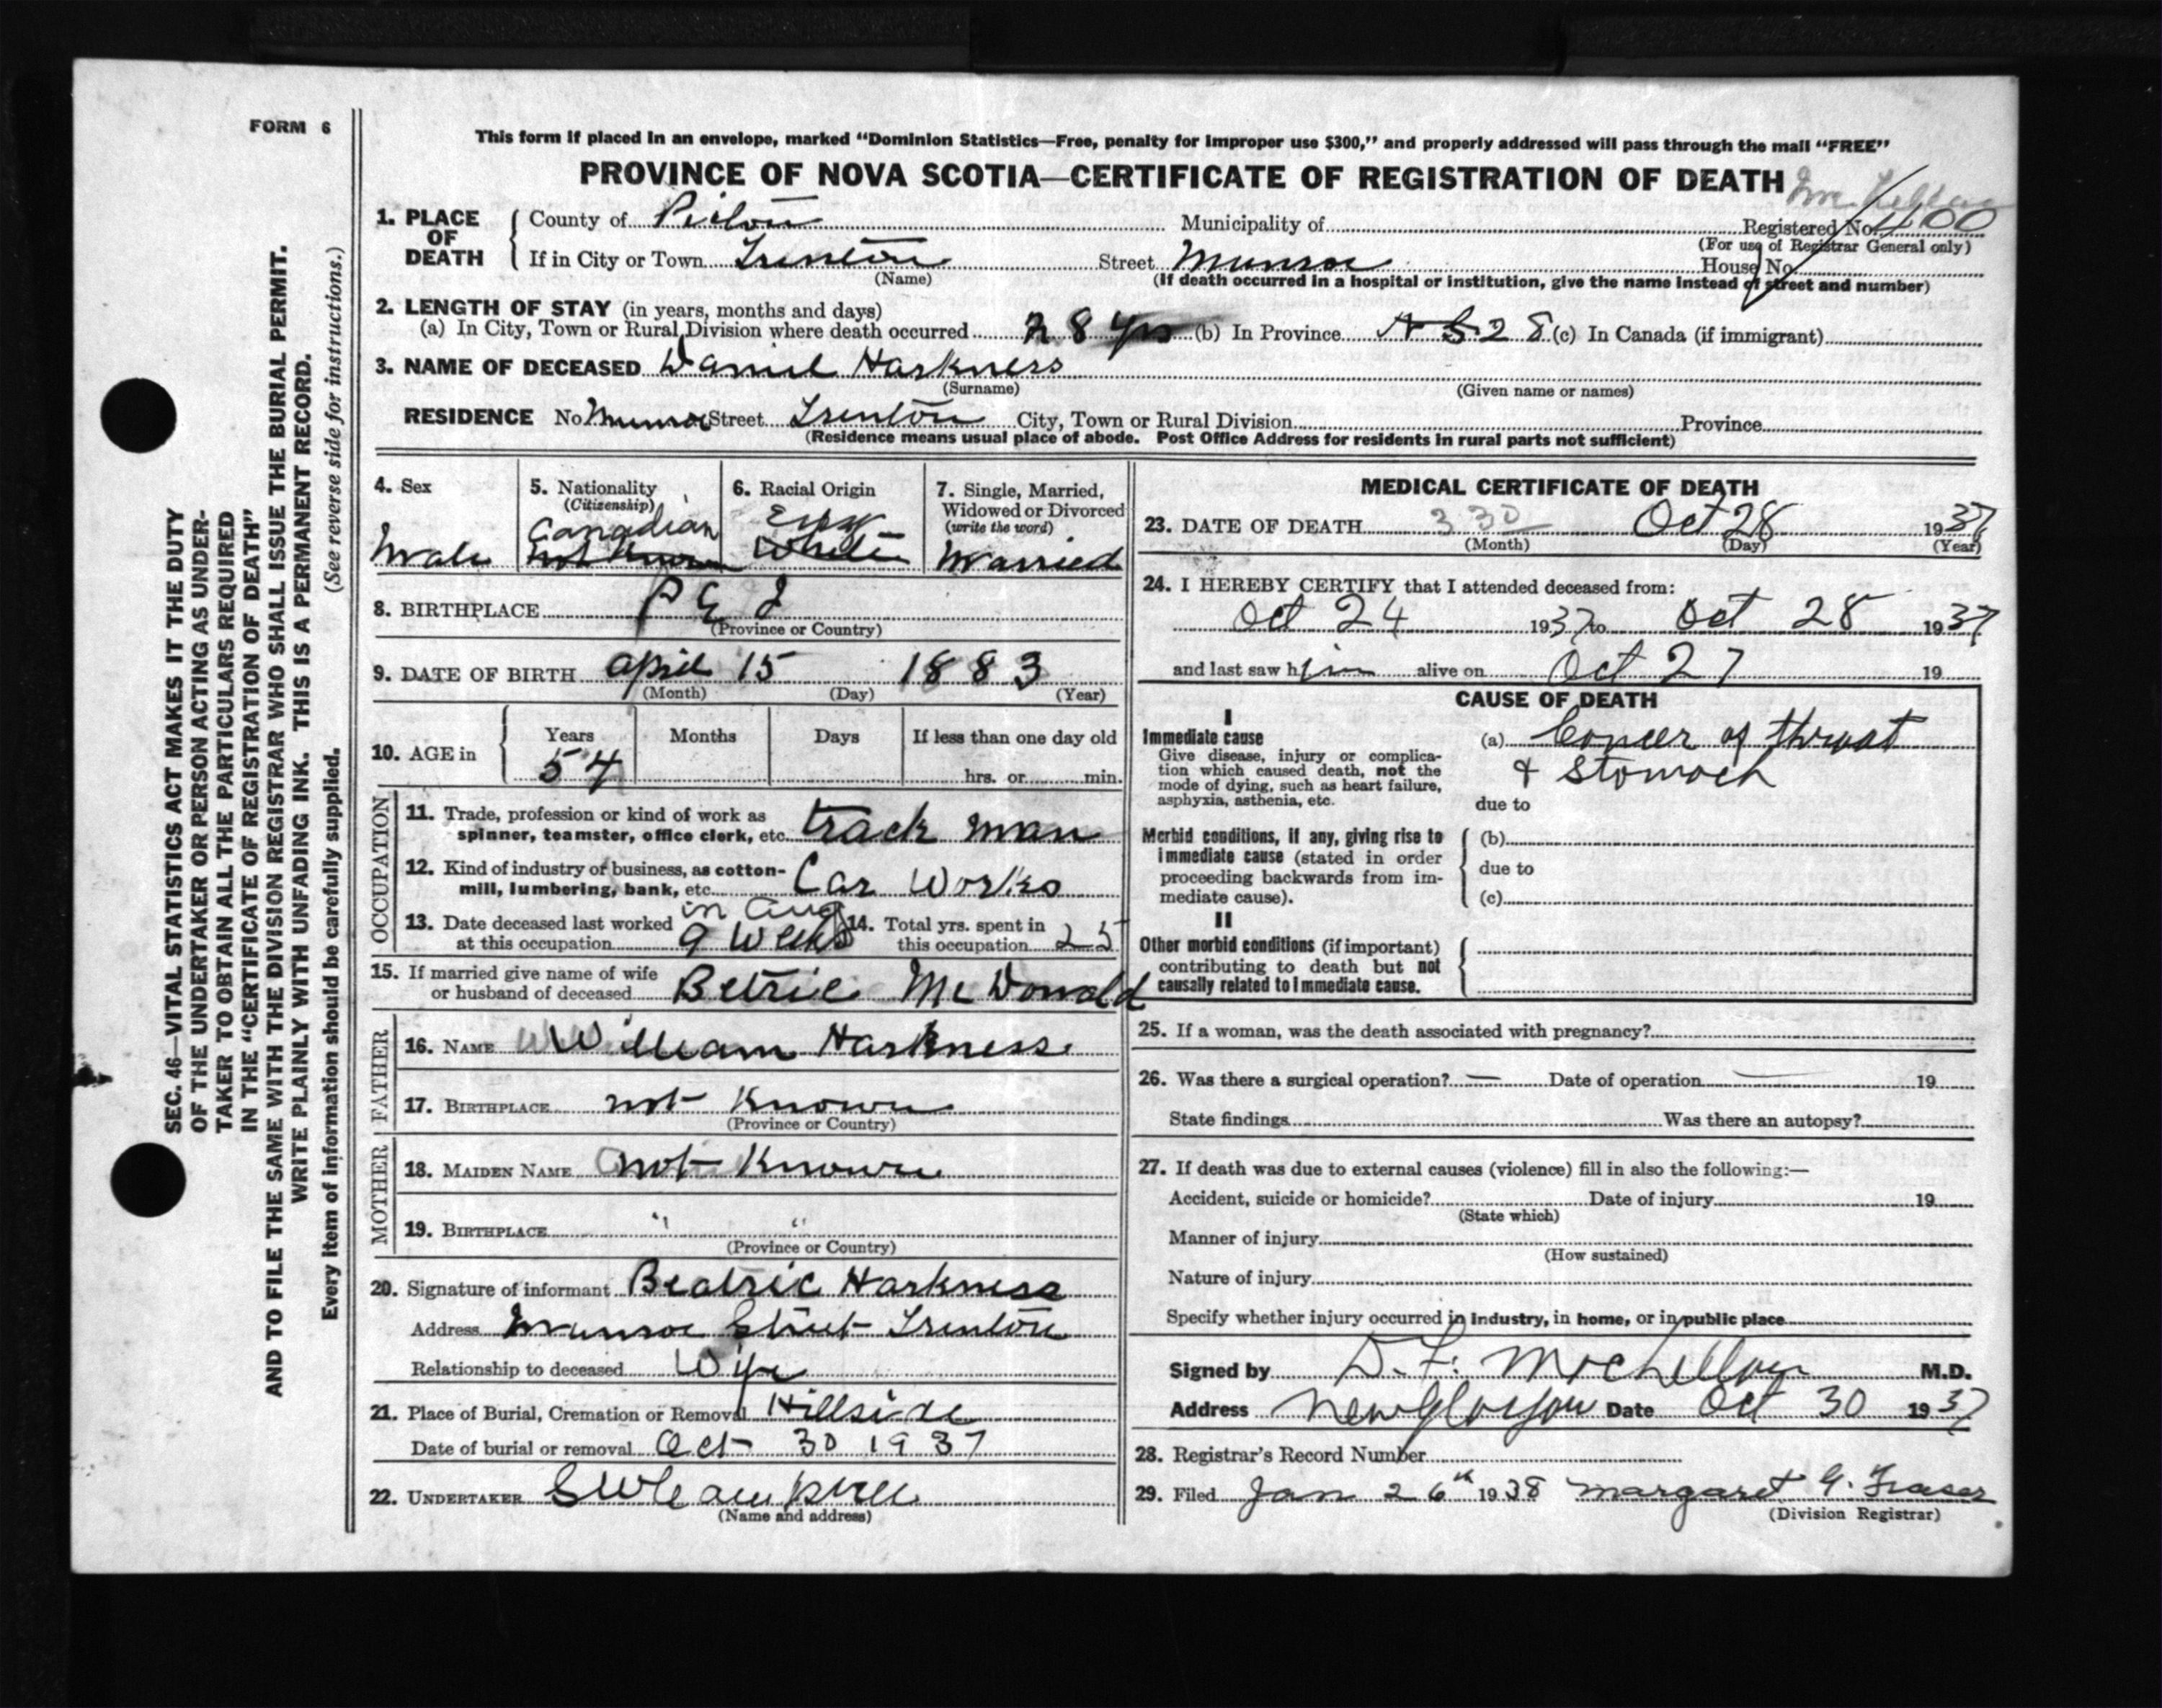 FORM 6
This form if placed in an envelope, marked "Dominion Statistics—Free, penalty for improper use $300," and properly addressed will pass through the mail "FREE"
PROVINCE OF NOVA SCOTIA—CERTIFICATE OF REGISTRATION OF DEATH
1. PLACE OF DEATH County of Pictou Municipality of Registered No. 400
(For use of Registrar General only)
If in City or Town Trenton Street Munroe House No.
(Name) (If death occurred in a hospital or institution, give the name instead of street and number)
2. LENGTH OF STAY (in years, months and days)
(a) In City, Town or Rural Division where death occurred 28 yrs (b) In Province N S 28 (c) In Canada (if immigrant)
3. NAME OF DECEASED Daniel Harkness
(Surname) (Given name or names)
RESIDENCE No. Munroe Street Trenton City, Town or Rural Division Province
(Residence means usual place of abode. Post Office Address for residents in rural parts not sufficient)
4. Sex 5. Nationality (Citizenship) 6. Racial Origin 7. Single, Married, Widowed or Divorced (write the word)
Canadian
Male not known White Married
8. BIRTHPLACE P E I
(Province or Country)
9. DATE OF BIRTH April 15 1883
(Month) (Day) (Year)
10. AGE in Years Months Days If less than one day old
54 hrs. or min.
OCCUPATION
11. Trade, profession or kind of work as
spinner, teamster, office clerk, etc. track man
12. Kind of industry of business, as cotton-
mill, lumbering, bank, etc. Car Works
13. Date deceased last worked in Aug
at this occupation 9 Weeks
14. Total yrs. spent in
this occupation 25
15. If married give name of wife
or husband of deceased Betric McDonald
FATHER
16. NAME William Harkness
17. BIRTHPLACE not Known
(Province or Country)
MOTHER
18. MAIDEN NAME not Known
19. BIRTHPLACE " "
(Province or Country)
20. Signature of informant Beatric Harkness
Address Munroe Street Trenton
Relationship to deceased Wife
21. Place of Burial, Cremation or Removal Hillside
Date of burial or removal Oct 30 1937
22. UNDERTAKER
(Name and address)
MEDICAL CERTIFICATE OF DEATH
23. DATE OF DEATH 330 Oct 28 1937
(Month) (Day) (Year)
24. I HEREBY CERTIFY that I attended deceased from:
Oct 24 1937 to Oct 28 1937
and last saw him alive on Oct 27 19
CAUSE OF DEATH
I
Immediate cause
Give disease, injury or complica-
tion which caused death, not the
mode of dying, such as heart failure,
asphyxia, asthenia, etc.
(a) Cancer of throat
& stomach
due to
Morbid conditions, if any, giving rise to
immediate cause (stated in order
proceeding backwards from im-
mediate cause).
(b)
due to
(c)
II
Other morbid conditions (if important)
contributing to death but not
causally related to immediate cause.
25. If a woman, was the death associated with pregnancy?
26. Was there a surgical operation? — Date of operation — 19
State findings Was there an autopsy?
27. If death was due to external causes (violence) fill in also the following:—
Accident, suicide or homicide? Date of injury 19
(State which)
Manner of injury
(How sustained)
Nature of injury
Specify whether injury occurred in industry, in home, or in public place
Signed by D. F. McLellan M.D.
Address New Glasgow Date Oct 30 1937
28. Registrar's Record Number
29. Filed Jan 26th 1938 Margaret G. Fraser
(Division Registrar)
SEC. 46—VITAL STATISTICS ACT MAKES IT THE DUTY
OF THE UNDERTAKER OR PERSON ACTING AS UNDER-
TAKER TO OBTAIN ALL THE PARTICULARS REQUIRED
IN THE "CERTIFICATE OF REGISTRATION OF DEATH"
AND TO FILE THE SAME WITH THE DIVISION REGISTRAR WHO SHALL ISSUE THE BURIAL PERMIT.
WRITE PLAINLY WITH UNFADING INK. THIS IS A PERMANENT RECORD.
Every item of information should be carefully supplied. (See reverse side for instructions.)